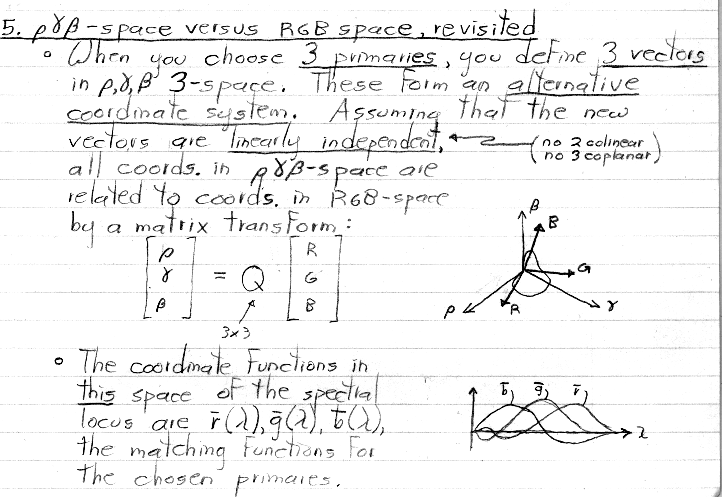 5. ργβ-space versus RGB space, revisited
• When you choose 3 primaries, you define 3 vectors
in ρ,γ,β 3-space. These form an alternative
coordinate system. Assuming that the new
vectors are linearly independent, ← (no 2 colinear
no 3 coplanar)
all coords. in ργβ-space are
related to coords. in RGB-space
by a matrix transform:
[ρ γ β] = Q [R G B]
3x3
β
B
G
ρ
R
γ
• The coordinate functions in
this space of the spectral
locus are r̄(λ), ḡ(λ), b̄(λ),
the matching functions for
the chosen primaries.
b̄) ḡ) r̄)
λ